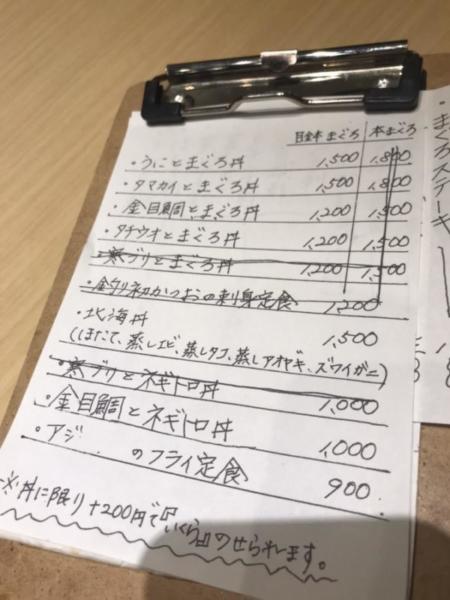 目金本まぐろ 本まぐろ
・うにとまぐろ丼 1,500 1,800
・タマカイとまぐろ丼 1,500 1,800
・金目鯛とまぐろ丼 1,200 1,500
・タチウオとまぐろ丼 1,200 1,500
・寒ブリとまぐろ丼 1,200 1,500
・金夕リネ刀かつおの刺身定食 1,200
・北海丼 1,500
(ほたて、蒸しエビ、蒸しタコ、蒸しアオヤギ、ズワイガニ)
・寒ブリとネギトロ丼 1,000
・金目鯛とネギトロ丼 1,000
・アジ のフライ定食 900
※丼に限り+200円で『いくら』のせられます。
・まぐろステーキ